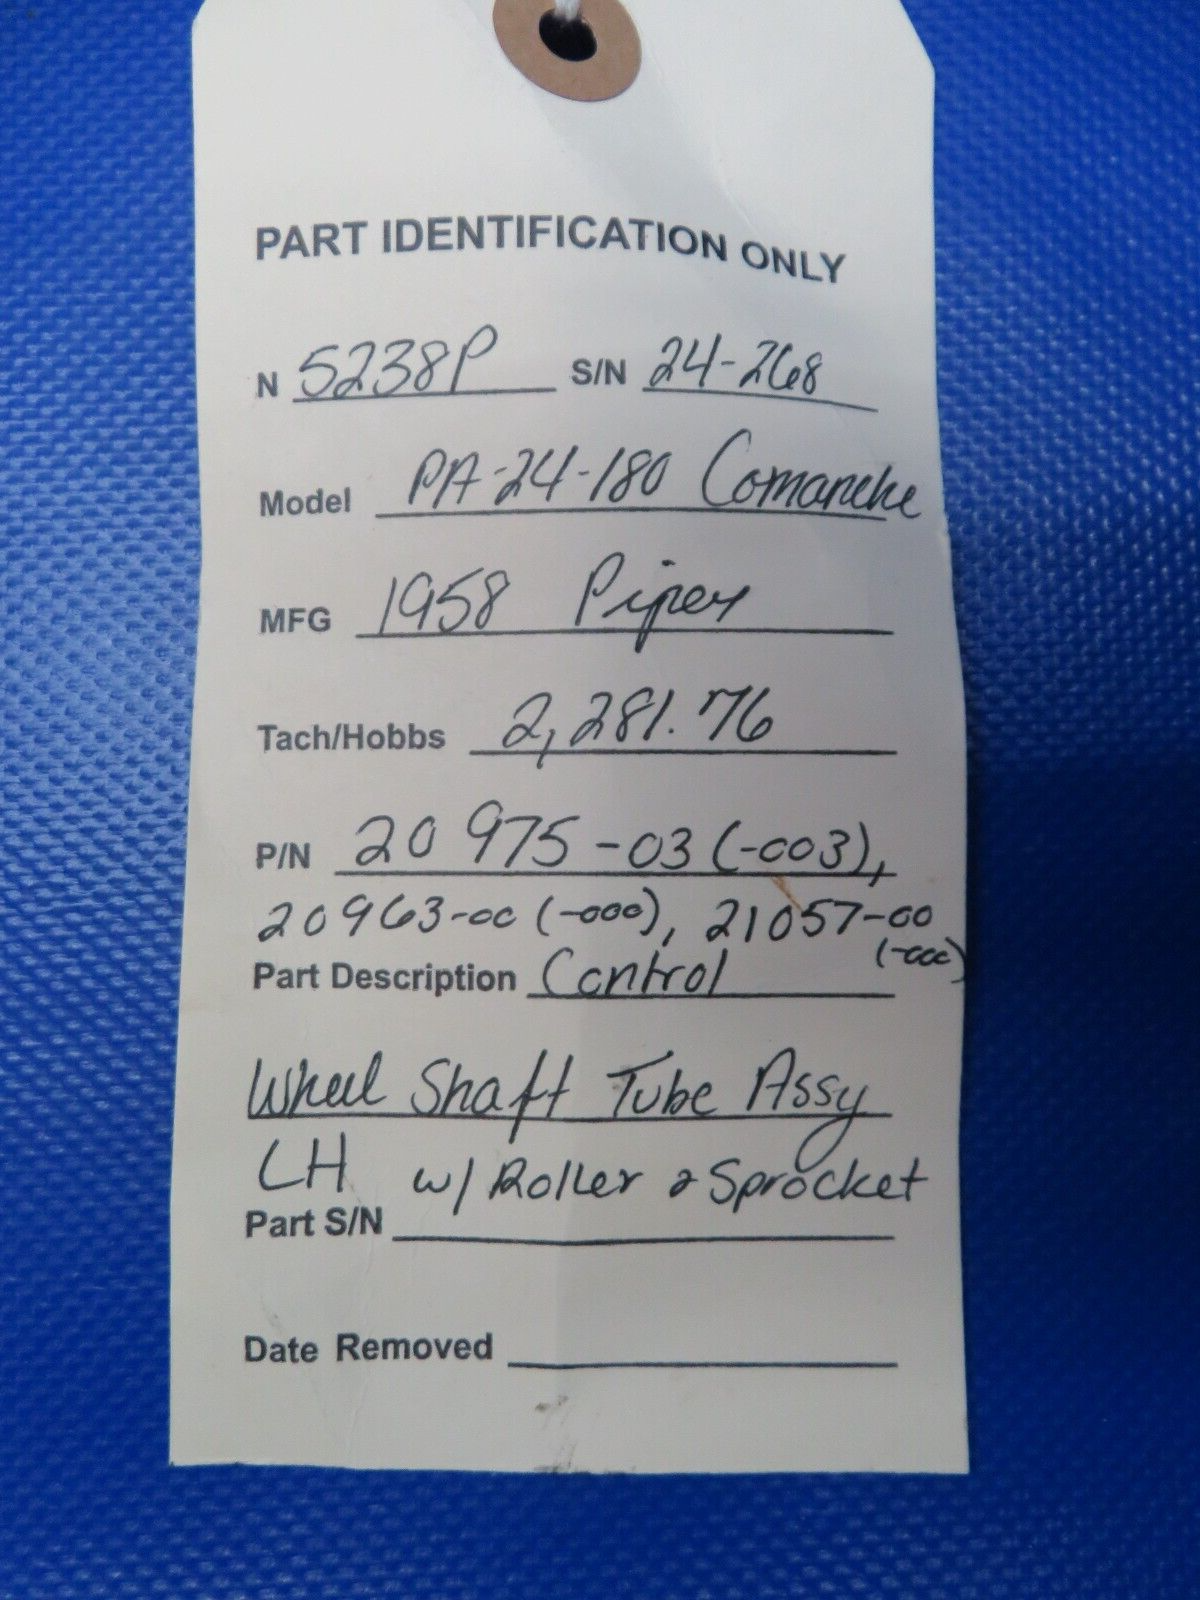 PART IDENTIFICATION ONLY
N 5238P S/N 24-268
Model PA-24-180 Comanche
MFG 1958 Piper
Tach/Hobbs 2,281.76
P/N 20975-03 (-003),
20963-00 (-000), 21057-00
(-000)
Part Description Control
Wheel Shaft Tube Assy
LH w/ Roller & Sprocket
Part S/N
Date Removed